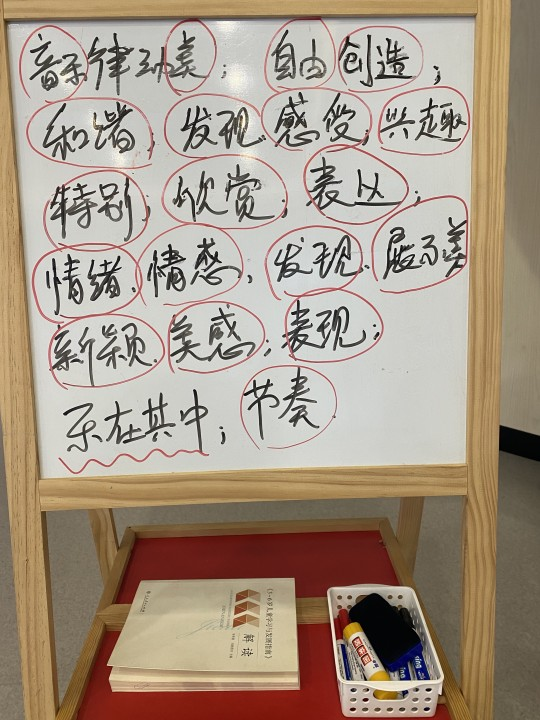 音乐律动美；自由创造；
和谐；发现.感受；兴趣
特别；欣赏；表达；
情绪、情感，发现、展示美
新颖.美感；表现；
乐在其中；节奏.
《3-6岁儿童学习与发展指南》
解读